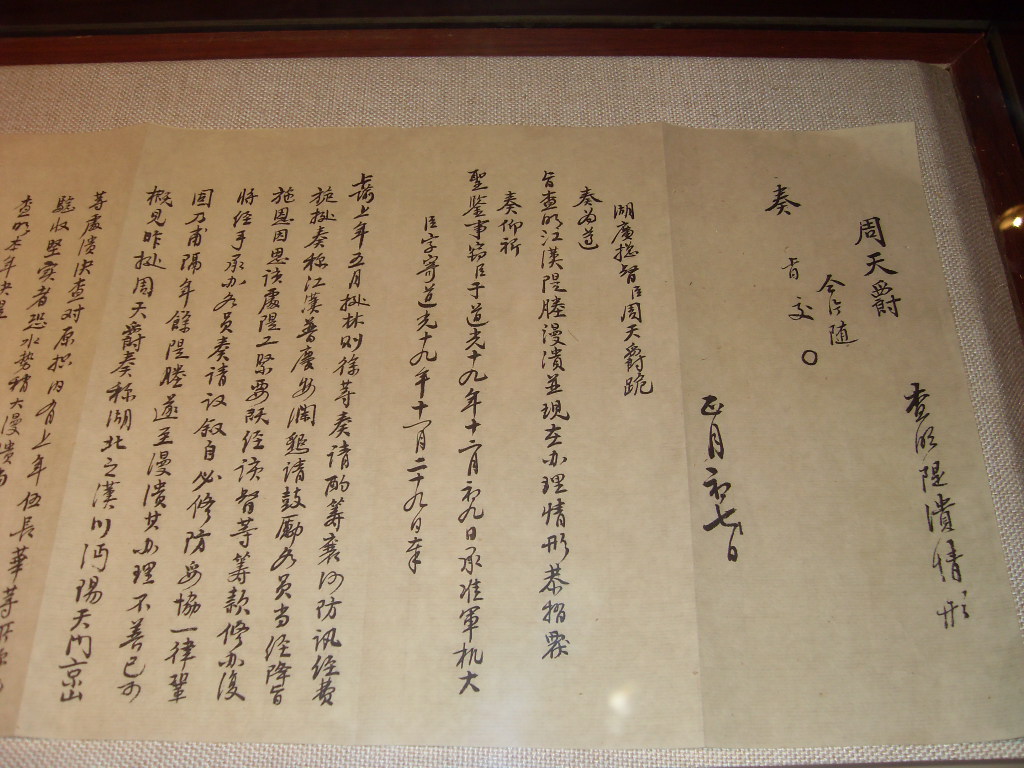 周天爵
查明隄潰情形
奏
正月初七日
湖廣總督臣周天爵跪
奏為遵
旨查明江漢隄塍漫潰並現在办理情形恭摺覆
奏仰祈
聖鑒事竊臣于道光十九年十二月初九日承准軍机大
臣字寄道光十九年十一月二十九日奉
上諭上年五月據林則徐等奏請酌籌襄河防汛經費
旋據奏称江漢普慶安瀾懇請鼓勵各員当經降旨
施恩因思該處隄工緊要既經該督等籌款修办復
將經手承办各員奏请议叙自必修防妥協一律鞏
固乃甫隔年餘隄塍遂至漫潰其办理不善已可
概見昨據周天爵奏称湖北之漢川沔陽天門京山
等處潰決查对原摺内有上年伍長華等
驗收堅實者恐水勢稍大漫潰
查明本年決隄